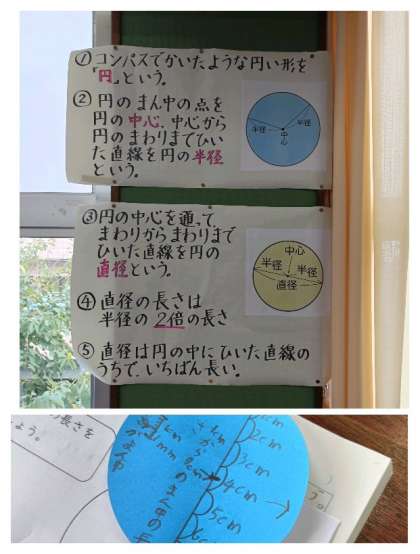 ① コンパスでかいたような円い形を
「円」という。
② 円のまん中の点を
円の中心、中心から
円のまわりまでひい
た直線を円の半径
という。
半径 半径
中心
③ 円の中心を通って
まわりからまわりまで
ひいた直線を円の
直径という。
中心
半径 半径
直径
④ 直径の長さは
半径の2倍の長さ
⑤ 直径は円の中にひいた直線の
うちで、いちばん長い。
の長さを
よう。
2cm
3cm
4cm
5cm